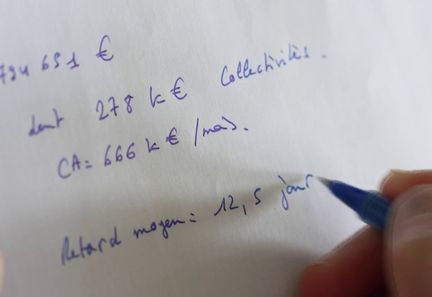 794 651 €
dont 278 k € Collectivités.
CA = 666 k € / mois.
Retard moyen = 12,5 jour